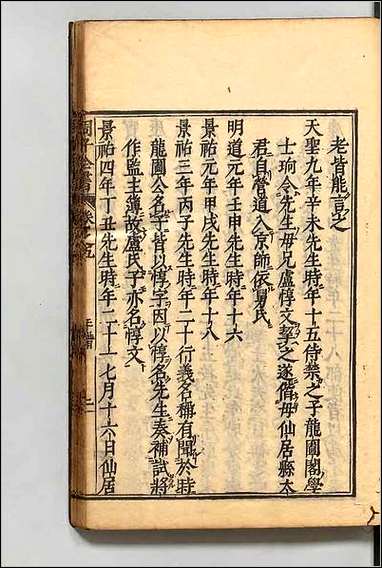 老皆能言之
天聖九年辛未先生時年十五侍禁之子龍圖閣學
士珦令先生母兄盧惇文挈之遂偕母仙居縣太
君自營道入京師依舅氏
明道元年壬申先生時年十六
景祐元年甲戌先生時年十八
景祐三年丙子先生時年二十行義名稱有聞於時
龍圖公名子皆以惇字因以惇名先生奏補試將
作監主簿故盧氏子亦名惇文
景祐四年丁丑先生時年二十一七月十六日仙居
周子全書
年譜